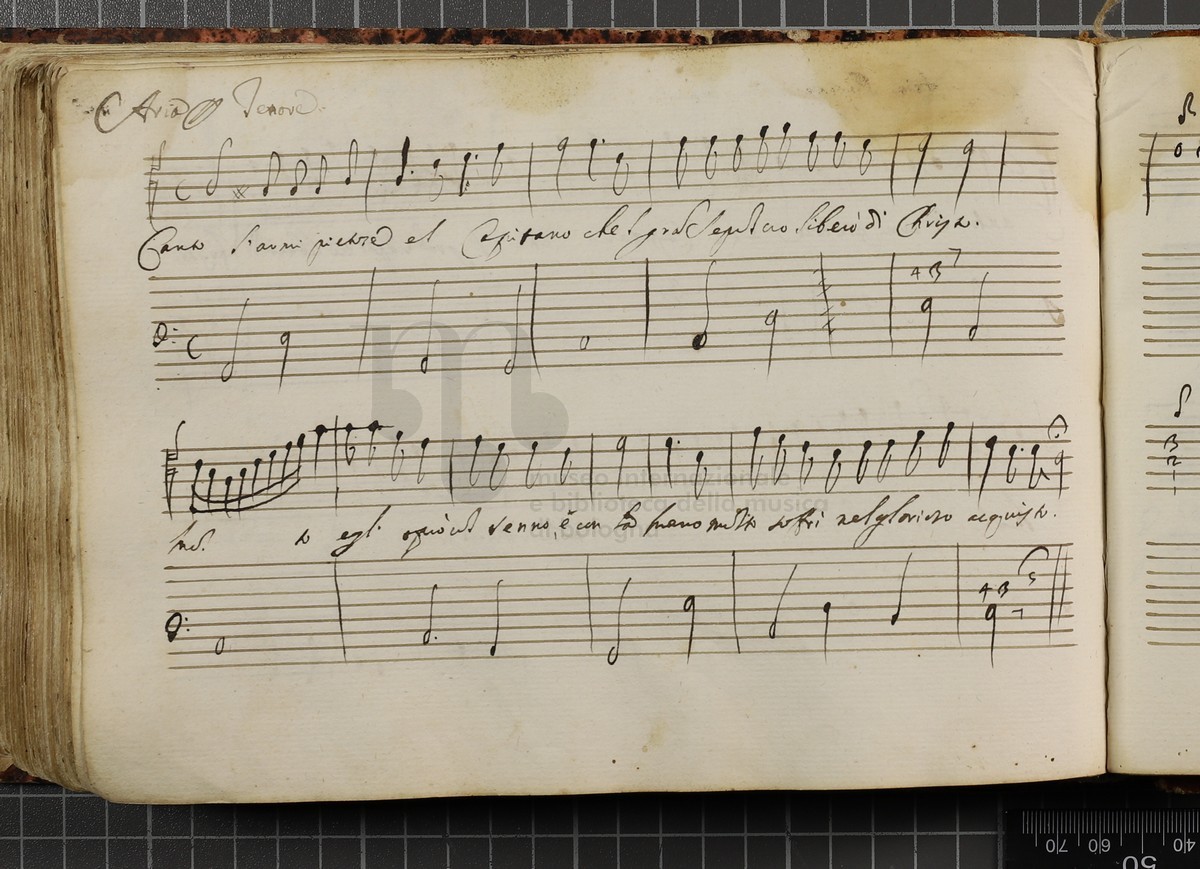 Aria Tenore
Canto l'armi pietose el Capitano che'l gra Sepulcro liberò di Christo.
4 3
egli oprò col senno, è con la mano molto soffrì nel glorioso acquisto.
4 3
museo internazionale
e biblioteca della musica
di bologna
70 60 50 40